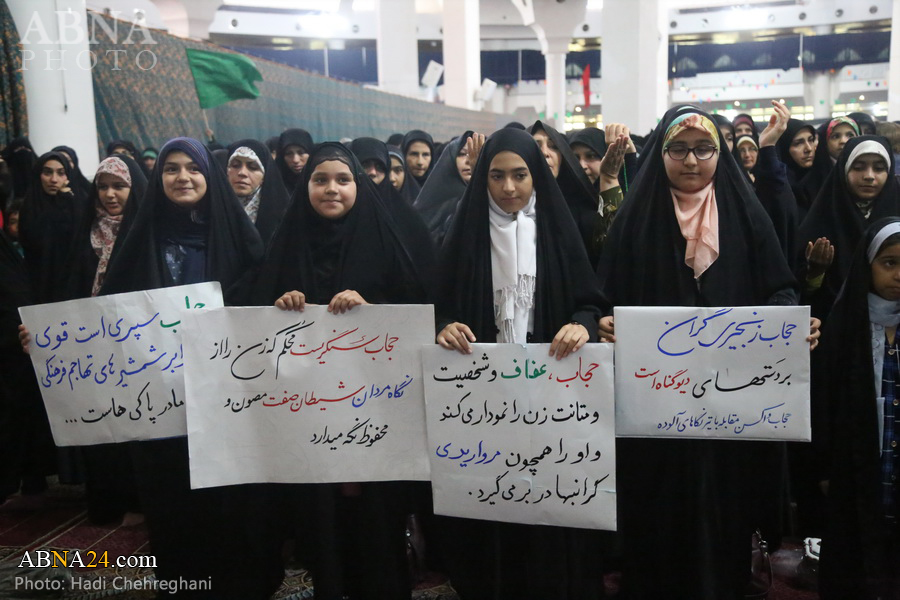 ABNA
PHOTO
حجاب سپری است قوی
در برابر شمشیرهای تهاجم فرهنگی
مادر پاکی هاست ...
حجاب سنگریست محکم که زن را از
نگاه مردان شیطان صفت مصون و
محفوظ نگه میدارد
حجاب، عفاف و شخصیت
و متانت زن را نمودار می کند
و او را همچون مرواریدی
گرانبها در بر می گیرد.
حجاب زنجیری گران
بر دستهای دیو گناه است
حجاب واکسن مقابله با تیر نگاهای آلوده
ABNA24.com
Photo: Hadi Chehreghani